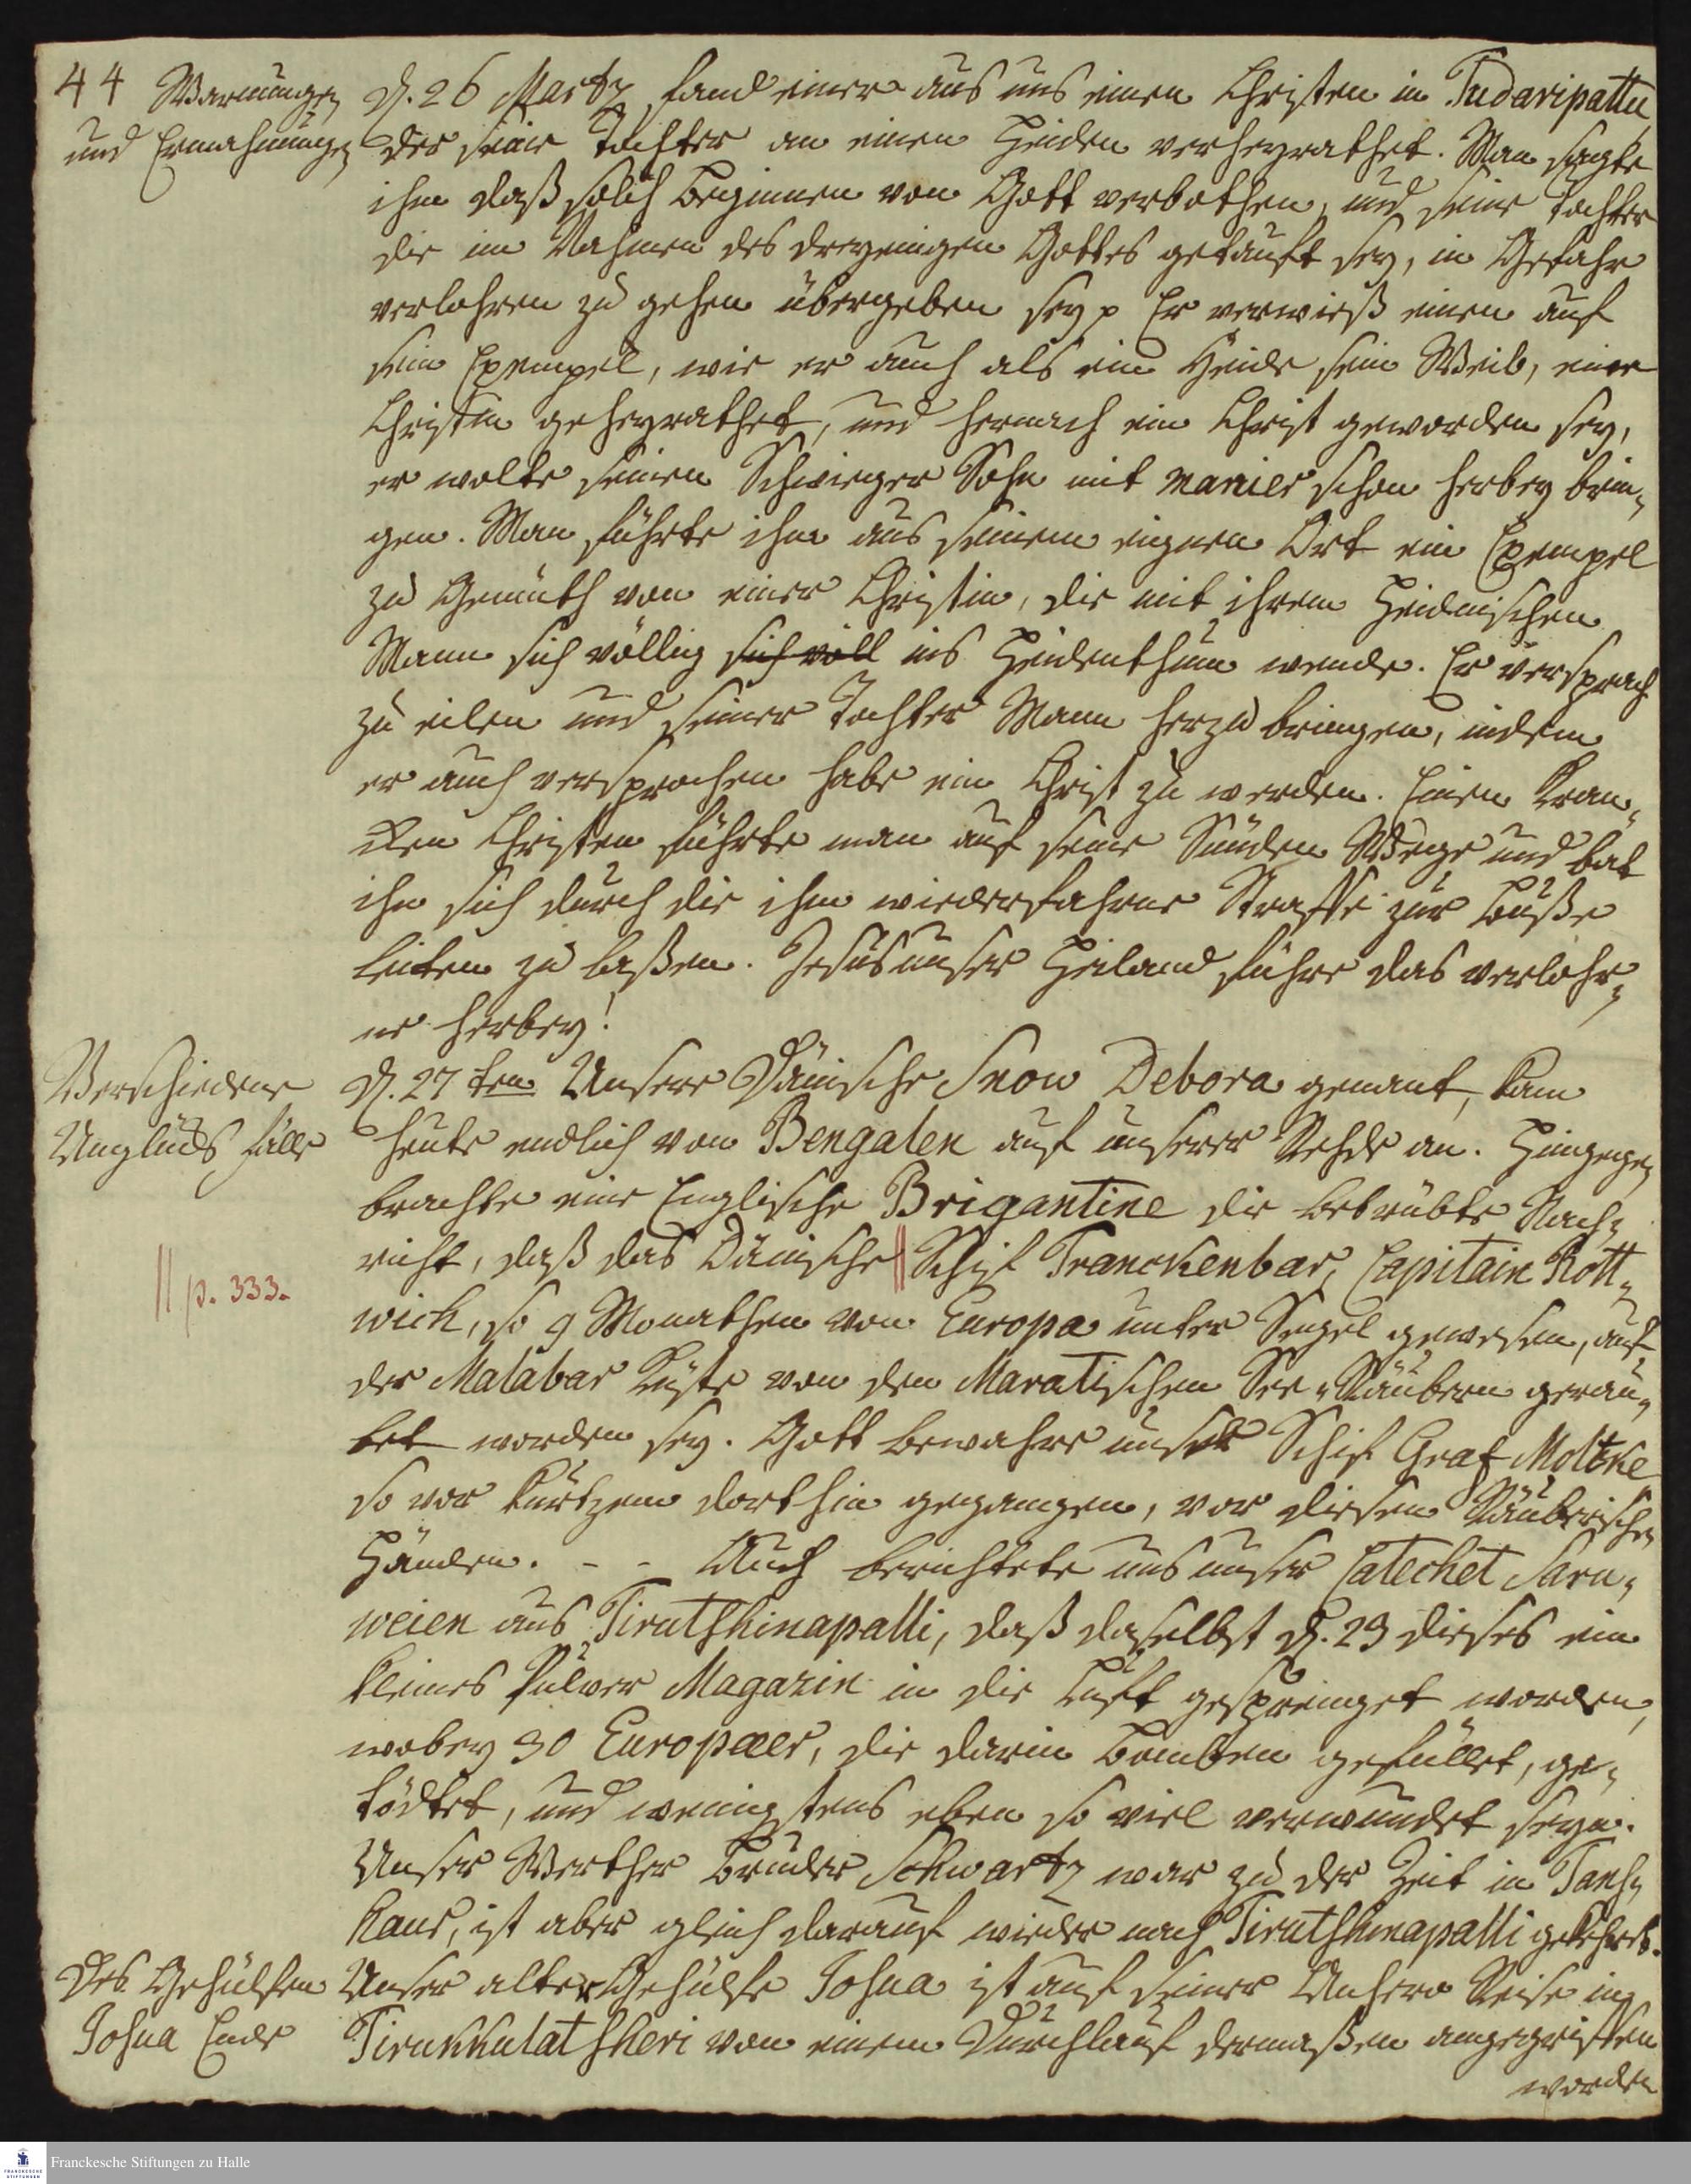 44 Warnungen
und Ermahnungen
D. 26 Martz fand einer aus uns einen Christen in Tudaripattu
der seine Tochter an einen Heiden verheyrathet. Man sagte
ihm daß solch Beginnen von Gott verbothen, und seine Tochter
die im Nahmen des dreyeinigen Gottes getauft sey, in Gefahr
verlohren zu gehen übergeben sey p Er verwieß einen auf
sein Exempel, wie er auch als ein Heide sein Weib, eine
Christin geheyrathet, und hernach ein Christ geworden sey,
er wolte seinen Schwieger Sohn mit manier schon herbey brin-
gen. Man führte ihm aus seinem eignen Ort ein Exempel
zu Gemüth von einer Christin, die mit ihrem Heidnischen
Mann sich völlig sich völl ins Heidenthum wende. Er versprach
zu eilen und seiner Tochter Mann herzu bringen, indem
er auch versprochen habe ein Christ zu werden. Einen Kran-
cken Christen führte man auf seine Sünden Wege und bat
ihn sich durch die ihm wiederfahrne Straffe zur Buße
leiten zu laßen. Jesus unser Heiland führe das verlohr-
ne herbey!
Verschiedene
Unglücks fälle
D. 27ten Unsere Dänische Snow Debora genant, kam
heute endlich von Bengalen auf unserer Rehde an. Hingegen
brachte eine Englische Brigantine die betrübte Nach-
richt, daß das Dänische || Schif Tranckenbar, Capitain Rott-
|| p. 333.
wich, so 9 Monathen von Europa unter Segel gewesen, auf
der Malabar Küste von den Maratischen See-Räubern gerau-
bet worden sey. Gott bewahre unser Schif Graf Moltke
so vor kurtzem dorthin gegangen, vor diesen Räuberischen
Händen. - - Auch berichtete uns unser Catechet Saru-
weien aus Tirutshinapalli, daß daselbst d. 23 dieses ein
kleines Pulver Magazin in die Luft gesprenget worden,
wobey 30 Europæer, die darin Bomben gefüllet, ge-
tödtet, und wenigstens eben so viel verwundet seyn.
Unser Werther Bruder Schwartz war zu der Zeit in Tansh-
kaur, ist aber gleich darauf wieder nach Tirutshinapalli gekehret.
Des Gehülfen
Josua Ende
Unser alter Gehülfe Josua ist auf seiner Unsern Reise in
Tirukkulatsheri von einem Durchlauf dermaßen angegriffen
worden
Franckesche Stiftungen zu Halle